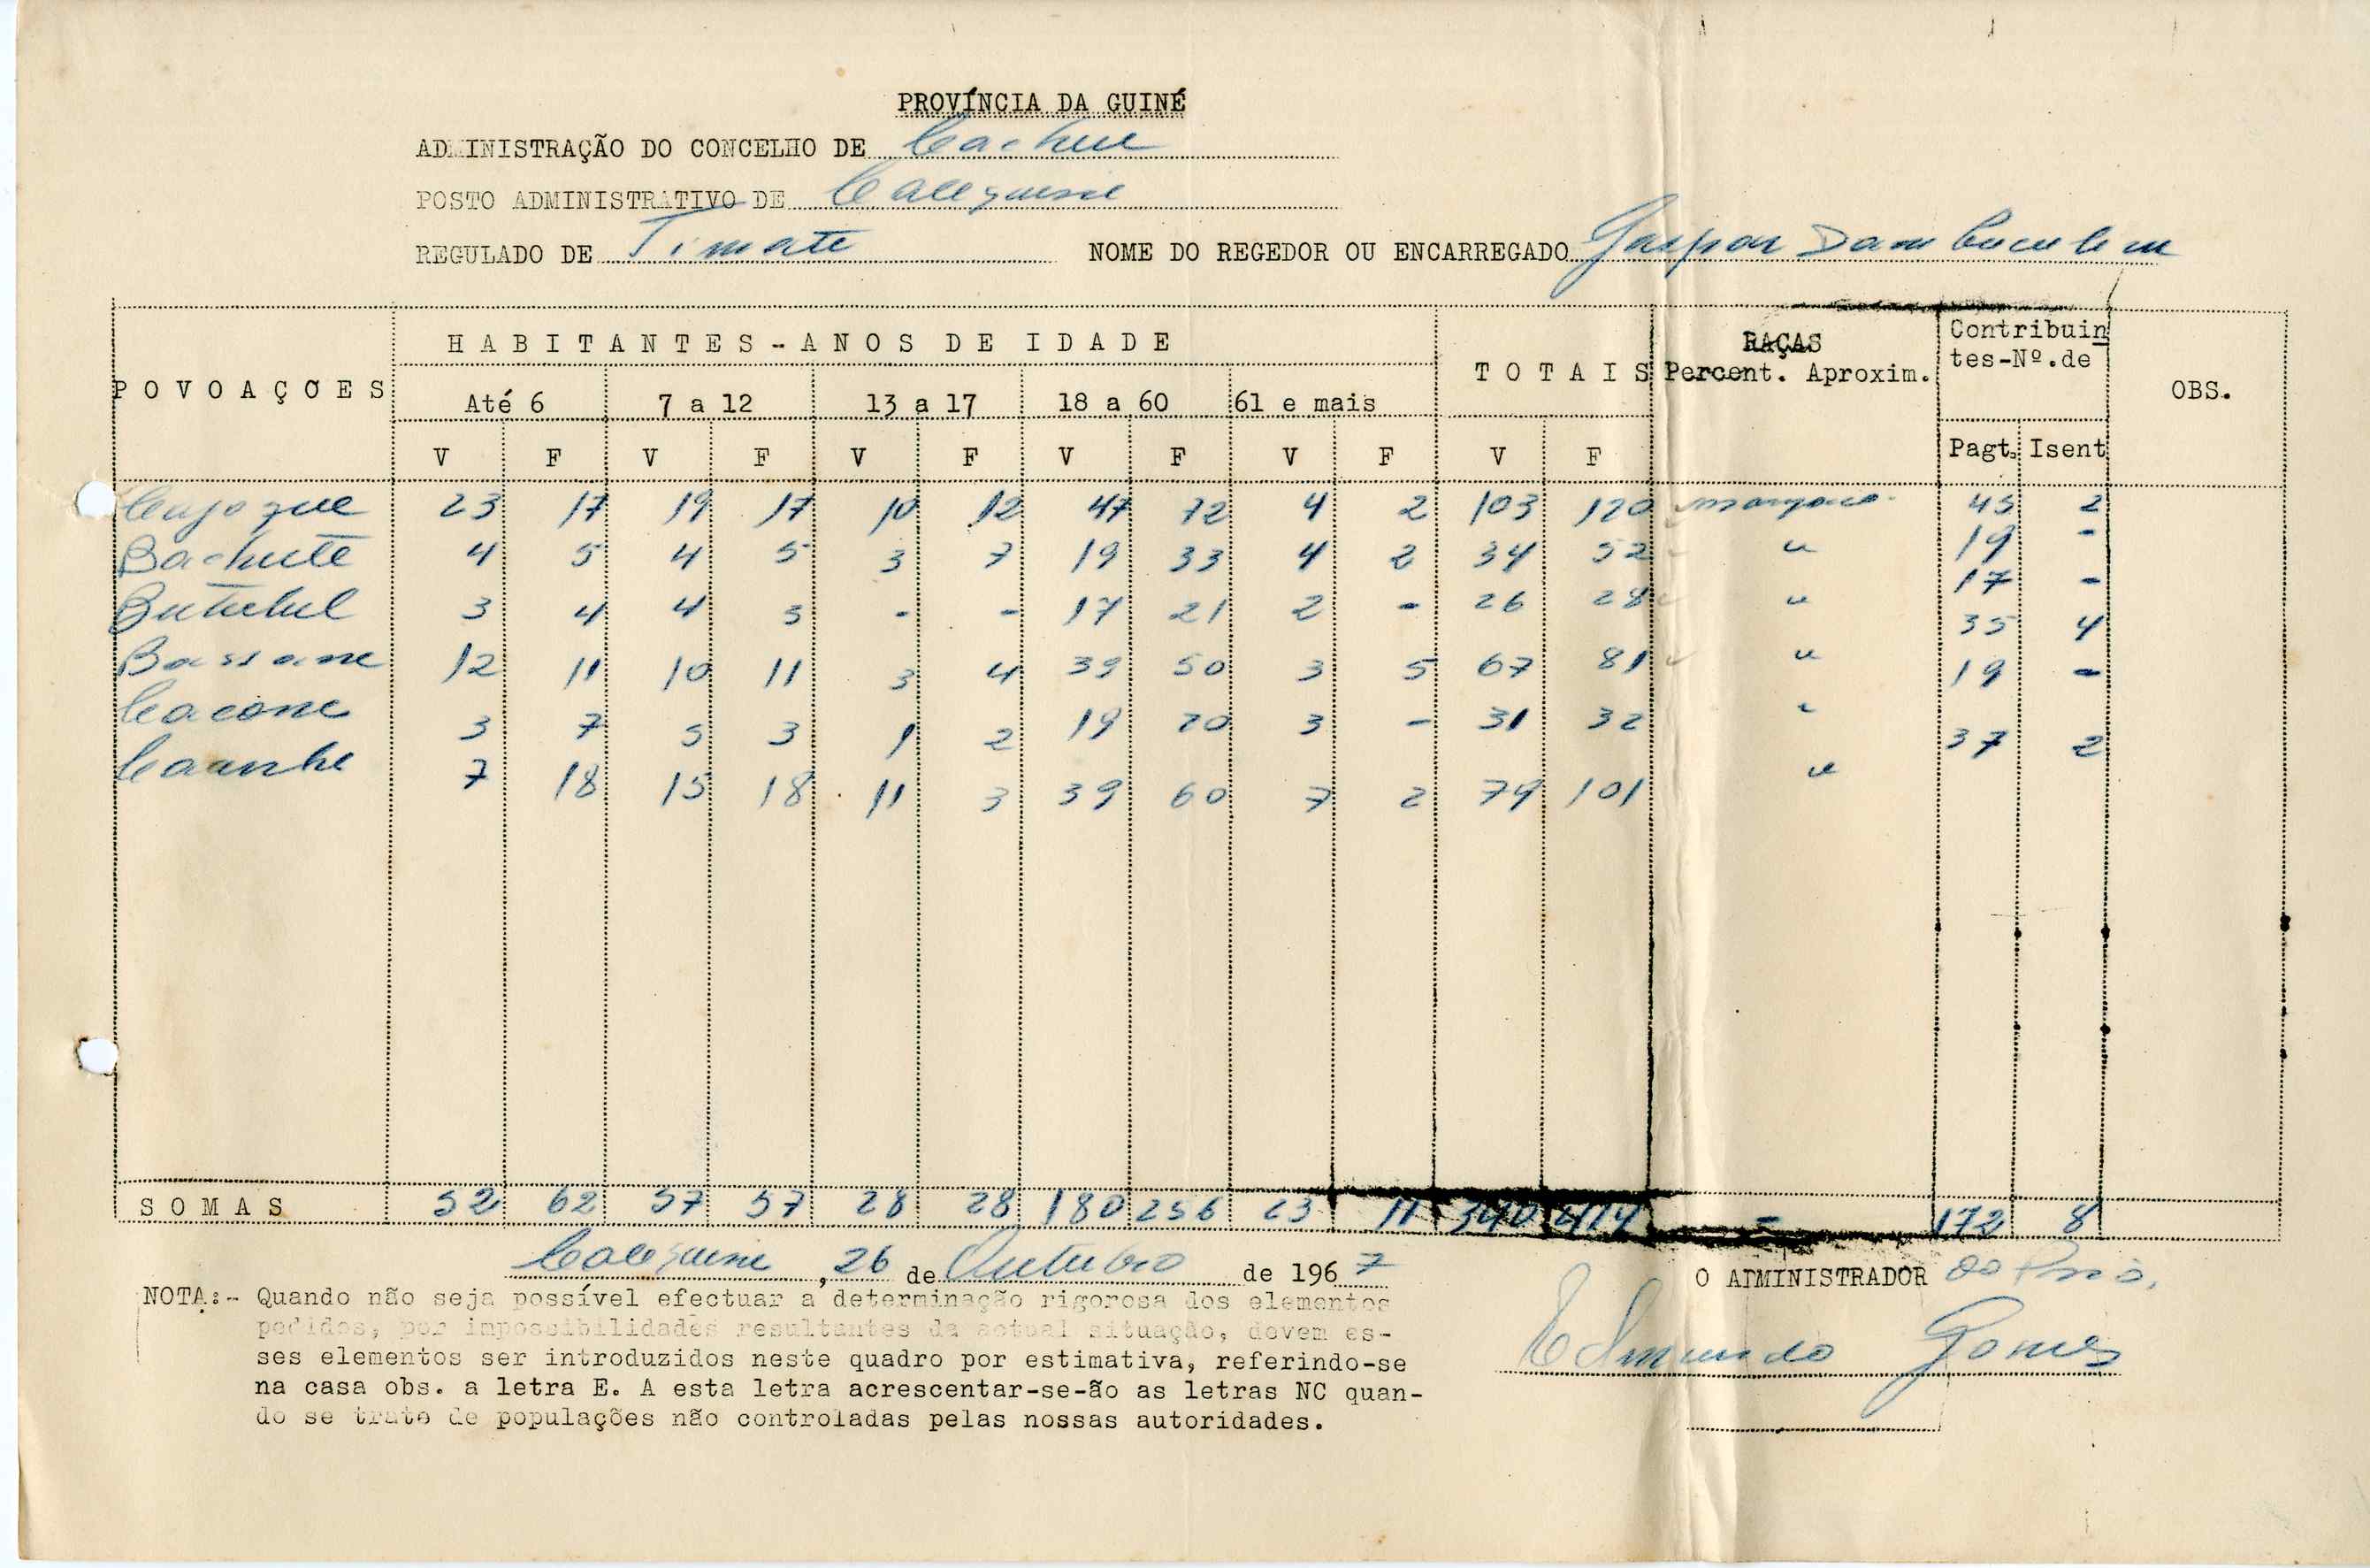 PROVÍNCIA DA GUINÉ
ADMINISTRAÇÃO DO CONCELHO DE Cacheu
POSTO ADMINISTRATIVO DE Calequisse
REGULADO DE Timate NOME DO REGEDOR OU ENCARREGADO Gaspar
POVOAÇÕES HABITANTES-ANOS DE IDADE TOTAIS RAÇAS Percent. Aproxim. Contribuin tes-Nº.de OBS.
Até 6 7 a 12 13 a 17 18 a 60 61 e mais
V F V F V F V F V F V F Pagt. Isent
Cajoque 23 17 19 17 10 12 47 72 4 2 103 120 manjaco 45 2
Bachute 4 5 4 5 3 7 19 33 4 2 34 52 " 19 -
3 4 4 3 - - 17 21 2 - 26 28 " 17 -
Bassane 12 11 10 11 3 4 39 50 3 5 67 81 " 35 4
Cacone 3 7 5 3 1 2 19 20 3 - 31 32 " 19 -
7 18 15 18 11 3 39 60 7 2 79 101 " 37 2
SOMAS 52 62 57 57 28 28 180 256 23 11 340 414 - 172 8
Calequisse, 26 de Outubro de 1967
O ADMINISTRADOR do
Edmundo Gomes
NOTA:- Quando não seja possível efectuar a determinação rigorosa dos elementos
pedidos, por impossibilidades resultantes da actual situação, devem es-
ses elementos ser introduzidos neste quadro por estimativa, referindo-se
na casa obs. a letra E. A esta letra acrescentar-se-ão as letras NC quan-
do se trate de populações não controladas pelas nossas autoridades.